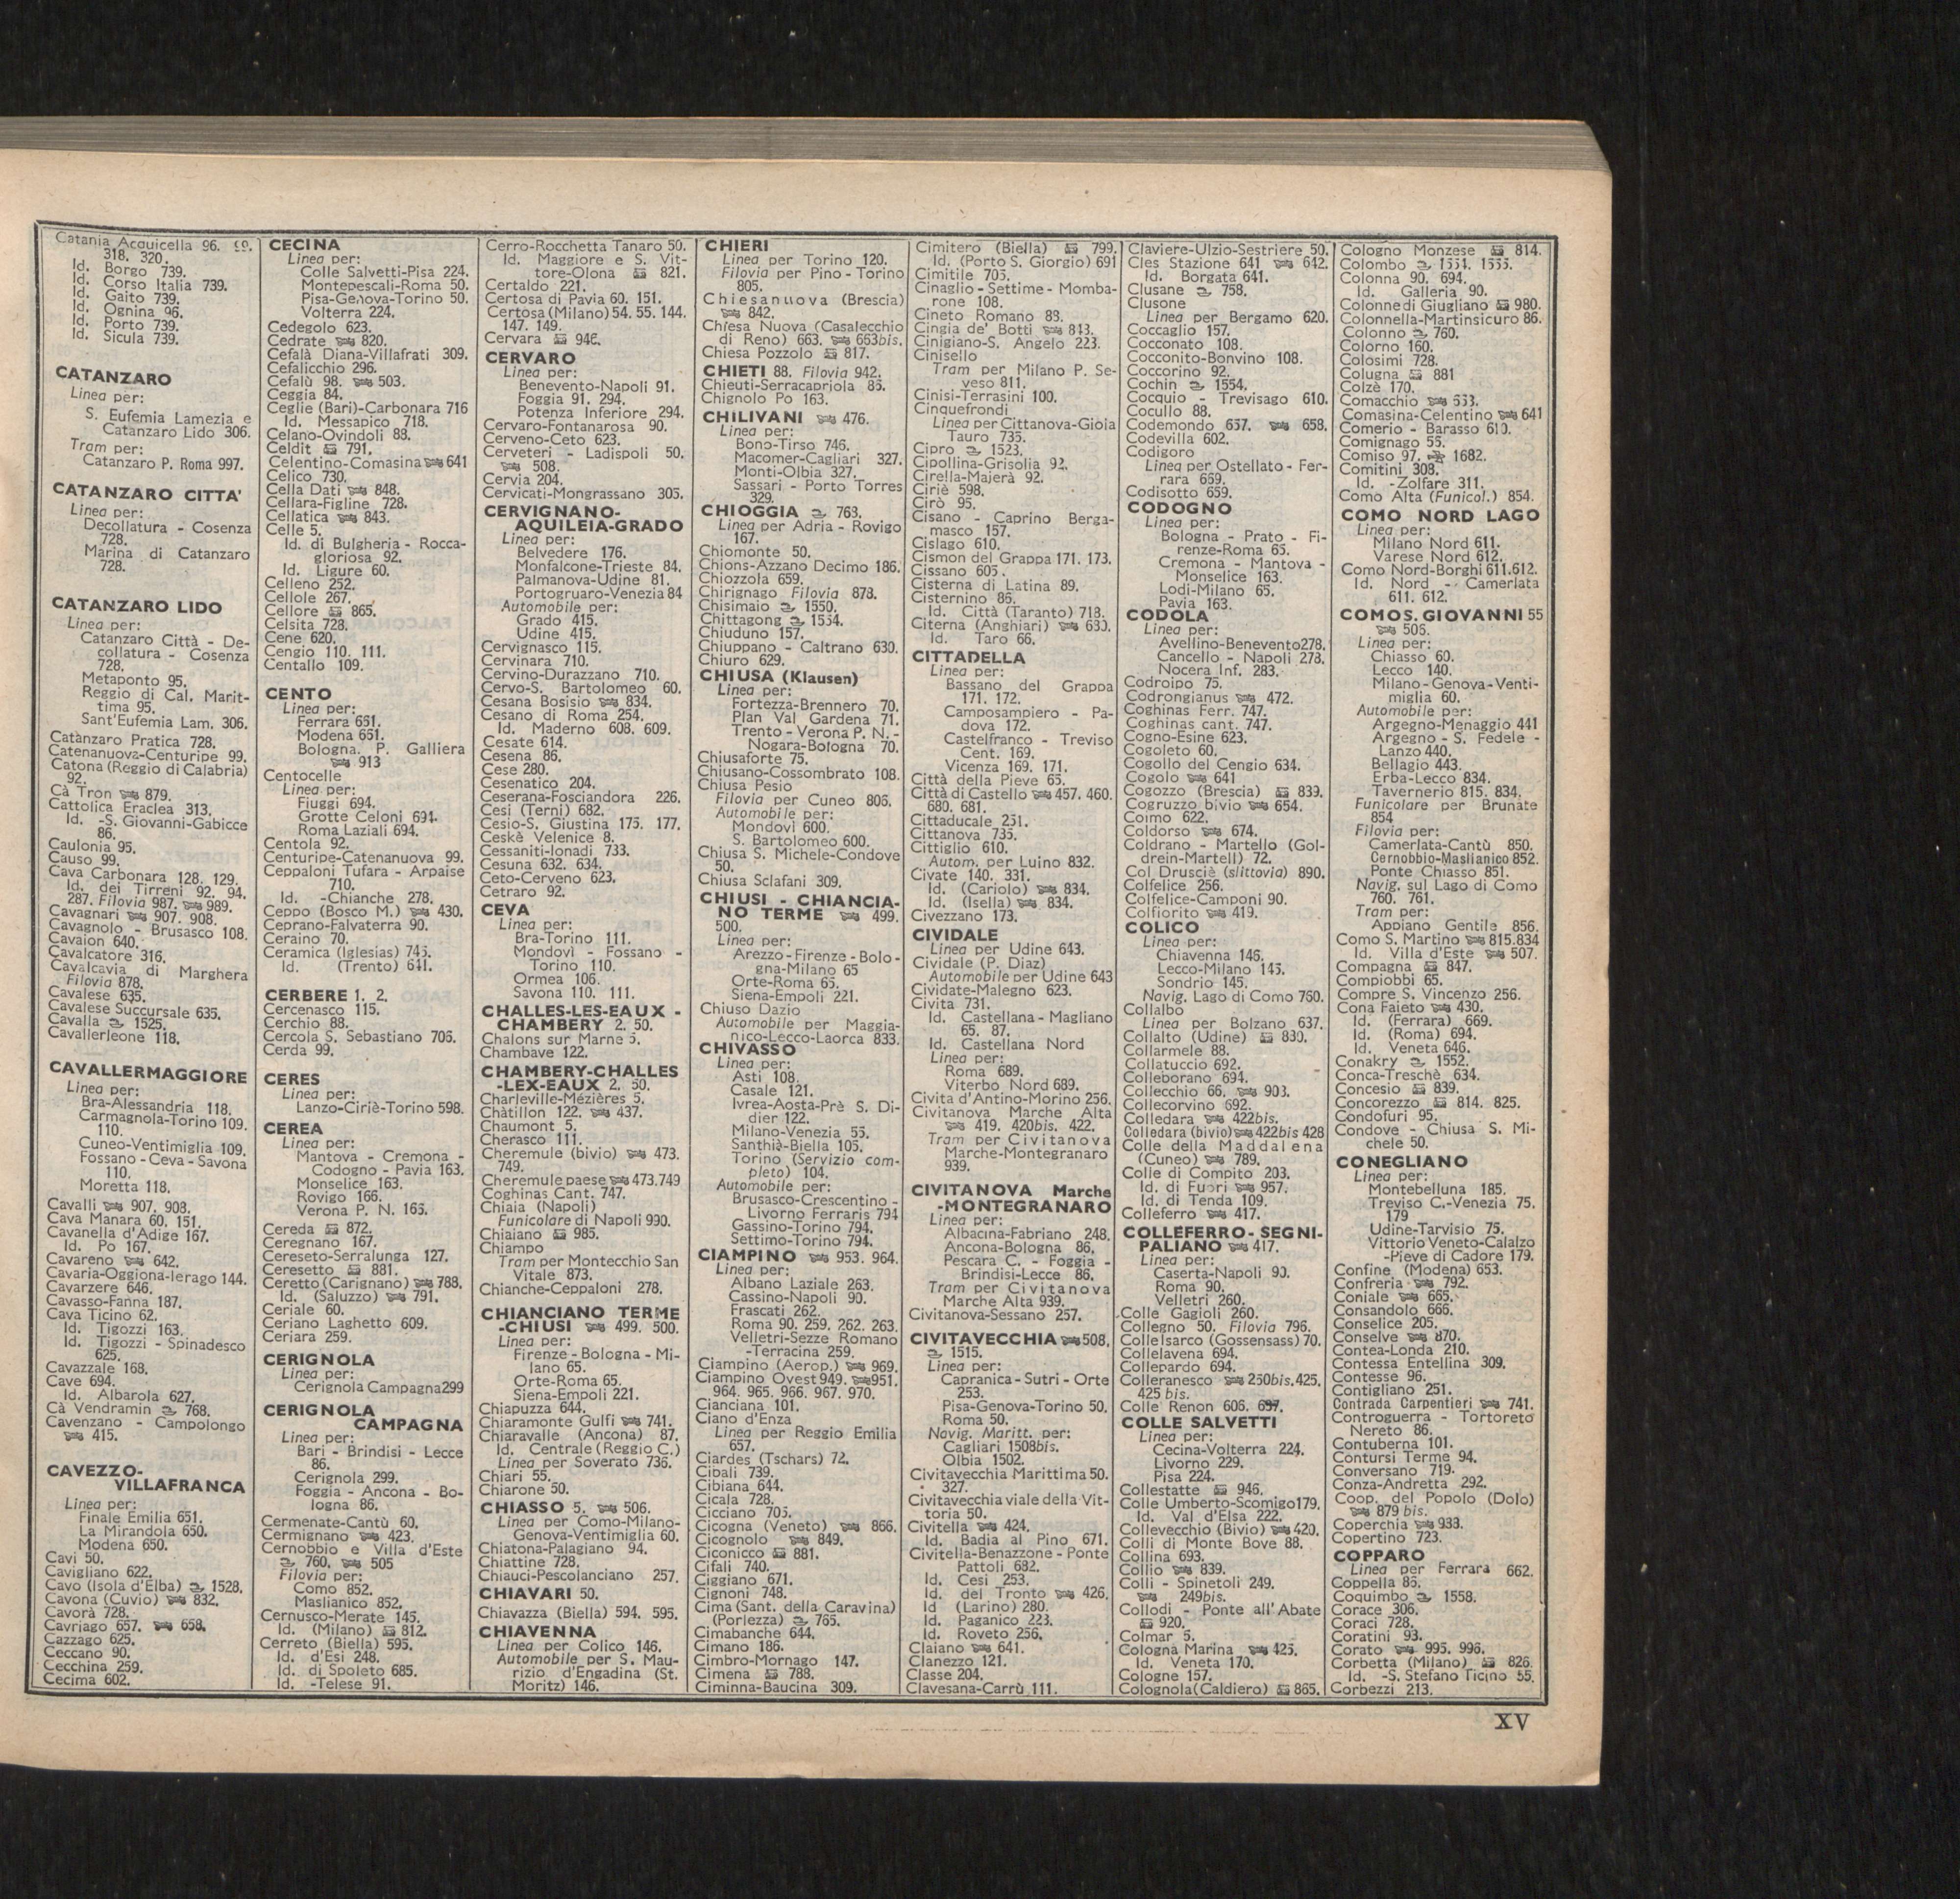 Catania Acquicella 96.
318. 320.
Id. Borgo 739.
Id. Corso Italia 739.
Id. Gaito 739.
Id. Ognina 96.
Id. Porto 739.
Id. Sicula 739.
CATANZARO
Linea per:
S. Eufemia Lamezia e
Catanzaro Lido 306.
Tram per:
Catanzaro P. Roma 997.
CATANZARO CITTA'
Linea per:
Decollatura - Cosenza
728.
Marina di Catanzaro
728.
CATANZARO LIDO
Linea per:
Catanzaro Città - De-
collatura - Cosenza
728.
Metaponto 95.
Reggio di Cal. Marit-
tima 95.
Sant'Eufemia Lam. 306.
Catànzaro Pratica 728.
Catenanuova-Centuripe 99.
Catona (Reggio di Calabria)
92.
Cà Tron 879.
Cattolica Eraclea 313.
Id. -S. Giovanni-Gabicce
86.
Caulonia 95.
Causo 99.
Cava Carbonara 128. 129.
Id. dei Tirreni 92. 94.
287. Filovia 987. 989.
Cavagnari 907. 908.
Cavagnolo - Brusasco 108.
Cavaion 640.
Cavalcatore 316.
Cavalcavia di Marghera
Filovia 878.
Cavalese 635.
Cavalese Succursale 635.
Cavalla 1525.
Cavallerleone 118.
CAVALLERMAGGIORE
Linea per:
Bra-Alessandria 118.
Carmagnola-Torino 109.
110.
Cuneo-Ventimiglia 109.
Fossano - Ceva - Savona
110.
Moretta 118.
Cavalli 907. 908.
Cava Manara 60. 151.
Cavanella d'Adige 167.
Id. Po 167.
Cavareno 642.
Cavaria-Oggiona-Ierago 144.
Cavarzere 646.
Cavasso-Fanna 187.
Cava Ticino 62.
Id. Tigozzi 163.
Id. Tigozzi - Spinadesco
625.
Cavazzale 168.
Cave 694.
Id. Albarola 627.
Cà Vendramin 768.
Cavenzano - Campolongo
415.
CAVEZZO-
VILLAFRANCA
Linea per:
Finale Emilia 651.
La Mirandola 650.
Modena 650.
Cavi 50.
Cavigliano 622.
Cavo (Isola d'Elba) 1528.
Cavona (Cuvio) 832.
Cavorà 728.
Cavriago 657. 658.
Cazzago 625.
Ceccano 90.
Cecchina 259.
Cecima 602.
CECINA
Linea per:
Colle Salvetti-Pisa 224.
Montepescali-Roma 50.
Pisa-Genova-Torino 50.
Volterra 224.
Cedegolo 623.
Cedrate 820.
Cefalà Diana-Villafrati 309.
Cefalicchio 296.
Cefalù 98. 503.
Ceggia 84.
Ceglie (Bari)-Carbonara 716
Id. Messapico 718.
Celano-Ovindoli 88.
Celdit 791.
Celentino-Comasina 641
Celico 730.
Cella Dati 848.
Cellara-Figline 728.
Cellatica 843.
Celle 5.
Id. di Bulgheria - Rocca-
gloriosa 92.
Id. Ligure 60.
Celleno 252.
Cellole 267.
Cellore 865.
Celsita 728.
Cene 620.
Cengio 110. 111.
Centallo 109.
CENTO
Linea per:
Ferrara 661.
Modena 651.
Bologna. P. Galliera
913
Centocelle
Linea per:
Fiuggi 694.
Grotte Celoni 694.
Roma Laziali 694.
Centola 92.
Centuripe-Catenanuova 99.
Ceppaloni Tufara - Arpaise
710.
Id. -Chianche 278.
Ceppo (Bosco M.) 430.
Ceprano-Falvaterra 90.
Ceraino 70.
Ceramica (Iglesias) 745.
Id. (Trento) 641.
CERBERE 1. 2.
Cercenasco 115.
Cerchio 88.
Cercola S. Sebastiano 706.
Cerda 99.
CERES
Linea per:
Lanzo-Ciriè-Torino 598.
CEREA
Linea per:
Mantova - Cremona -
Codogno - Pavia 163.
Monselice 163.
Rovigo 166.
Verona P. N. 165.
Cereda 872.
Ceregnano 167.
Cereseto-Serralunga 127.
Ceresetto 881.
Ceretto (Carignano) 788.
Id. (Saluzzo) 791.
Ceriale 60.
Ceriano Laghetto 609.
Ceriara 259.
CERIGNOLA
Linea per:
Cerignola Campagna 299
CERIGNOLA
CAMPAGNA
Linea per:
Bari - Brindisi - Lecce
86.
Cerignola 299.
Foggia - Ancona - Bo-
logna 86.
Cermenate-Cantù 60.
Cermignano 423.
Cernobbio e Villa d'Este
760. 505
Filovia per:
Como 852.
Maslianico 852.
Cernusco-Merate 145.
Id. (Milano) 812.
Cerreto (Biella) 595.
Id. d'Esi 248.
Id. di Spoleto 685.
Id. -Telese 91.
Cerro-Rocchetta Tanaro 50.
Id. Maggiore e S. Vit-
tore-Olona 821.
Certaldo 221.
Certosa di Pavia 60. 151.
Certosa (Milano) 54. 55. 144.
147. 149.
Cervara 946.
CERVARO
Linea per:
Benevento-Napoli 91.
Foggia 91. 294.
Potenza Inferiore 294.
Cervaro-Fontanarosa 90.
Cerveno-Ceto 623.
Cerveteri - Ladispoli 50.
508.
Cervia 204.
Cervicati-Mongrassano 305.
CERVIGNANO-
AQUILEIA-GRADO
Linea per:
Belvedere 176.
Monfalcone-Trieste 84.
Palmanova-Udine 81.
Portogruaro-Venezia 84
Automobile per:
Grado 415.
Udine 415.
Cervignasco 115.
Cervinara 710.
Cervino-Durazzano 710.
Cervo-S. Bartolomeo 60.
Cesana Bosisio 834.
Cesano di Roma 254.
Id. Maderno 608. 609.
Cesate 614.
Cesena 86.
Cese 280.
Cesenatico 204.
Ceserana-Fosciandora 226.
Cesi (Terni) 682.
Cesio-S. Giustina 175. 177.
Ceskè Velenice 8.
Cessaniti-Ionadi 733.
Cesuna 632. 634.
Ceto-Cerveno 623.
Cetraro 92.
CEVA
Linea per:
Bra-Torino 111.
Mondovì - Fossano -
Torino 110.
Ormea 106.
Savona 110. 111.
CHALLES-LES-EAUX -
CHAMBERY 2. 50.
Chalons sur Marne 5.
Chambave 122.
CHAMBERY-CHALLES
-LEX-EAUX 2. 50.
Charleville-Mézières 5.
Châtillon 122. 437.
Chaumont 5.
Cherasco 111.
Cheremule (bivio) 473.
749.
Cheremule paese 473.749
Coghinas Cant. 747.
Chiaia (Napoli)
Funicolare di Napoli 990.
Chiaiano 985.
Chiampo
Tram per Montecchio San
Vitale 873.
Chianche-Ceppaloni 278.
CHIANCIANO TERME
-CHIUSI 499. 500.
Linea per:
Firenze - Bologna - Mi-
lano 65.
Orte-Roma 65.
Siena-Empoli 221.
Chiapuzza 644.
Chiaramonte Gulfi 741.
Chiaravalle (Ancona) 87.
Id. Centrale (Reggio C.)
Linea per Soverato 736.
Chiari 55.
Chiarone 50.
CHIASSO 5. 506.
Linea per Como-Milano-
Genova-Ventimiglia 60.
Chiatona-Palagiano 94.
Chiattine 728.
Chiauci-Pescolanciano 257.
CHIAVARI 50.
Chiavazza (Biella) 594. 595.
CHIAVENNA
Linea per Colico 146.
Automobile per S. Mau-
rizio d'Engadina (St.
Moritz) 146.
CHIERI
Linea per Torino 120.
Filovia per Pino - Torino
805.
Chiesanuova (Brescia)
842.
Chiesa Nuova (Casalecchio
di Reno) 663. 663bis.
Chiesa Pozzolo 817.
CHIETI 88. Filovia 942.
Chieuti-Serracapriola 86.
Chignolo Po 163.
CHILIVANI 476.
Linea per:
Bono-Tirso 746.
Macomer-Cagliari 327.
Monti-Olbia 327.
Sassari - Porto Torres
329.
CHIOGGIA 763.
Linea per Adria - Rovigo
167.
Chiomonte 50.
Chions-Azzano Decimo 186.
Chiozzola 659.
Chirignago Filovia 878.
Chisimaio 1550.
Chittagong 1554.
Chiuduno 157.
Chiuppano - Caltrano 630.
Chiuro 629.
CHIUSA (Klausen)
Linea per:
Fortezza-Brennero 70.
Plan Val Gardena 71.
Trento - Verona P. N.-
Nogara-Bologna 70.
Chiusaforte 75.
Chiusano-Cossombrato 108.
Chiusa Pesio
Filovia per Cuneo 806.
Automobile per:
Mondovì 600.
S. Bartolomeo 600.
Chiusa S. Michele-Condove
50.
Chiusa Sclafani 309.
CHIUSI - CHIANCIA-
NO TERME 499.
500.
Linea per:
Arezzo - Firenze - Bolo-
gna-Milano 65
Orte-Roma 65.
Siena-Empoli 221.
Chiuso Dazio
Automobile per Maggia-
nico-Lecco-Laorca 833.
CHIVASSO
Linea per:
Asti 108.
Casale 121.
Ivrea-Aosta-Prè S. Di-
dier 122.
Milano-Venezia 55.
Santhià-Biella 105.
Torino (Servizio com-
pleto) 104.
Automobile per:
Brusasco-Crescentino -
Livorno Ferraris 794
Gassino-Torino 794.
Settimo-Torino 794.
CIAMPINO 953. 964.
Linea per:
Albano Laziale 263.
Cassino-Napoli 90.
Frascati 262.
Roma 90. 259. 262. 263.
Velletri-Sezze Romano
-Terracina 259.
Ciampino (Aerop.) 969.
Ciampino Ovest 949. 951.
964. 965. 966. 967. 970.
Cianciana 101.
Ciano d'Enza
Linea per Reggio Emilia
657.
Ciardes (Tschars) 72.
Cibali 739.
Cibiana 644.
Cicala 728.
Cicciano 705.
Cicogna (Veneto) 866.
Cicognolo 849.
Ciconicco 881.
Cifali 740.
Ciggiano 671.
Cignoni 748.
Cima (Sant. della Caravina)
(Porlezza) 765.
Cimabanche 644.
Cimano 186.
Cimbro-Mornago 147.
Cimena 788.
Ciminna-Baucina 309.
Cimitero (Biella) 799.
Id. (Porto S. Giorgio) 691
Cimitile 705.
Cinaglio - Settime - Momba-
rone 108.
Cineto Romano 88.
Cingia de' Botti 843.
Cinigiano-S. Angelo 223.
Cinisello
Tram per Milano P. Se-
veso 811.
Cinisi-Terrasini 100.
Cinquefrondi
Linea per Cittanova-Gioia
Tauro 735.
Cipro 1523.
Cipollina-Grisolia 92.
Cirella-Majerà 92.
Ciriè 598.
Cirò 95.
Cisano - Caprino Berga-
masco 157.
Cislago 610.
Cismon del Grappa 171. 173.
Cissano 605.
Cisterna di Latina 89.
Cisternino 86.
Id. Città (Taranto) 718.
Citerna (Anghiari) 630.
Id. Taro 66.
CITTADELLA
Linea per:
Bassano del Grappa
171. 172.
Camposampiero - Pa-
dova 172.
Castelfranco - Treviso
Cent. 169.
Vicenza 169. 171.
Città della Pieve 65.
Città di Castello 457. 460.
680. 681.
Cittaducale 251.
Cittanova 735.
Cittiglio 610.
Autom. per Luino 832.
Civate 140. 331.
Id. (Cariolo) 834.
Id. (Isella) 834.
Civezzano 173.
CIVIDALE
Linea per Udine 643.
Cividale (P. Diaz)
Automobile per Udine 643
Cividate-Malegno 623.
Civita 731.
Id. Castellana - Magliano
65. 87.
Id. Castellana Nord
Linea per:
Roma 689.
Viterbo Nord 689.
Civita d'Antino-Morino 256.
Civitanova Marche Alta
419. 420bis. 422.
Tram per Civitanova
Marche-Montegranaro
939.
CIVITANOVA Marche
-MONTEGRANARO
Linea per:
Albacina-Fabriano 248.
Ancona-Bologna 86.
Pescara C. - Foggia -
Brindisi-Lecce 86.
Tram per Civitanova
Marche Alta 939.
Civitanova-Sessano 257.
CIVITAVECCHIA 508.
1515.
Linea per:
Capranica - Sutri - Orte
253.
Pisa-Genova-Torino 50.
Roma 50.
Navig. Maritt. per:
Cagliari 1508bis.
Olbia 1502.
Civitavecchia Marittima 50.
327.
Civitavecchia viale della Vit-
toria 50.
Civitella 424.
Id. Badia al Pino 671.
Civitella-Benazzone - Ponte
Pattoli 682.
Id. Cesi 253.
Id. del Tronto 426.
Id (Larino) 280.
Id. Paganico 223.
Id. Roveto 256.
Claiano 641.
Clanezzo 121.
Classe 204.
Clavesana-Carrù 111.
Claviere-Ulzio-Sestriere 50.
Cles Stazione 641 642.
Id. Borgata 641.
Clusane 758.
Clusone
Linea per Bergamo 620.
Coccaglio 157.
Cocconato 108.
Cocconito-Bonvino 108.
Coccorino 92.
Cochin 1554.
Cocquio - Trevisago 610.
Cocullo 88.
Codemondo 657. 658.
Codevilla 602.
Codigoro
Linea per Ostellato - Fer-
rara 669.
Codisotto 659.
CODOGNO
Linea per:
Bologna - Prato - Fi-
renze-Roma 65.
Cremona - Mantova -
Monselice 163.
Lodi-Milano 65.
Pavia 163.
CODOLA
Linea per:
Avellino-Benevento 278.
Cancello - Napoli 278.
Nocera Inf. 283.
Codroipo 75.
Codrongianus 472.
Coghinas Ferr. 747.
Coghinas cant. 747.
Cogno-Esine 623.
Cogoleto 60.
Cogollo del Cengio 634.
Cogolo 641
Cogozzo (Brescia) 839.
Cogruzzo bivio 654.
Coimo 622.
Coldorso 674.
Coldrano - Martello (Gol-
drein-Martell) 72.
Col Drusciè (slittovia) 890.
Colfelice 256.
Colfelice-Camponi 90.
Colfiorito 419.
COLICO
Linea per:
Chiavenna 146.
Lecco-Milano 145.
Sondrio 145.
Navig. Lago di Como 760.
Collalbo
Linea per Bolzano 637.
Collalto (Udine) 830.
Collarmele 88.
Collatuccio 692.
Colleborano 694.
Collecchio 66. 903.
Collecorvino 692.
Colledara 422bis.
Colledara (bivio) 422bis 428
Colle della Maddalena
(Cuneo) 789.
Colle di Compito 203.
Id. di Fuori 957.
Id. di Tenda 109.
Colleferro 417.
COLLEFERRO - SEGNI-
PALIANO 417.
Linea per:
Caserta-Napoli 90.
Roma 90.
Velletri 260.
Colle Gagioli 260.
Collegno 50. Filovia 796.
Collelsarco (Gossensass) 70.
Collelavena 694.
Collepardo 694.
Colleranesco 250bis.425.
425 bis.
Colle Renon 606.
COLLE SALVETTI
Linea per:
Cecina-Volterra 224.
Livorno 229.
Pisa 224.
Collestatte 946.
Colle Umberto-Scomigo 179.
Id. Val d'Elsa 222.
Collevecchio (Bivio) 420.
Colli di Monte Bove 88.
Collina 693.
Collio 839.
Colli - Spinetoli 249.
249bis.
Collodi - Ponte all'Abate
920.
Colmar 5.
Cologna Marina 425.
Id. Veneta 170.
Cologne 157.
Colognola (Caldiero) 865.
Cologno Monzese 814.
Colombo 1554. 1555.
Colonna 90. 694.
Id. Galleria 90.
Colonne di Giugliano 980.
Colonnella-Martinsicuro 86.
Colonno 760.
Colorno 160.
Colosimi 728.
Colugna 881
Colzè 170.
Comacchio 653.
Comasina-Celentino 641
Comerio - Barasso 610.
Comignago 55.
Comiso 97. 1682.
Comitini 308.
Id. -Zolfare 311.
Como Alta (Funicol.) 854.
COMO NORD LAGO
Linea per:
Milano Nord 611.
Varese Nord 612.
Como Nord-Borghi 611.612.
Id. Nord - Camerlata
611. 612.
COMO S. GIOVANNI 55
506.
Linea per:
Chiasso 60.
Lecco 140.
Milano - Genova - Venti-
miglia 60.
Automobile per:
Argegno-Menaggio 441
Argegno - S. Fedele -
Lanzo 440.
Bellagio 443.
Erba-Lecco 834.
Tavernerio 815. 834.
Funicolare per Brunate
854
Filovia per:
Camerlata-Cantù 850.
Cernobbio-Maslianico 852.
Ponte Chiasso 851.
Navig. sul Lago di Como
760. 761.
Tram per:
Appiano Gentile 856.
Como S. Martino 815.834
Id. Villa d'Este 507.
Compagna 847.
Compiobbi 65.
Compre S. Vincenzo 256.
Cona Faieto 430.
Id. (Ferrara) 669.
Id. (Roma) 694.
Id. Veneta 646.
Conakry 1552.
Conca-Treschè 634.
Concesio 839.
Concorezzo 814. 825.
Condofuri 95.
Condove - Chiusa S. Mi-
chele 50.
CONEGLIANO
Linea per:
Montebelluna 185.
Treviso C.-Venezia 75.
179
Udine-Tarvisio 75.
Vittorio Veneto-Calalzo
-Pieve di Cadore 179.
Confine (Modena) 653.
Confreria 792.
Coniale 665.
Consandolo 666.
Conselice 205.
Conselve 870.
Contea-Londa 210.
Contessa Entellina 309.
Contesse 96.
Contigliano 251.
Contrada Carpentieri 741.
Controguerra - Tortoreto
Nereto 86.
Contuberna 101.
Contursi Terme 94.
Conversano 719.
Conza-Andretta 292.
Coop. del Popolo (Dolo)
879 bis.
Coperchia 933.
Copertino 723.
COPPARO
Linea per Ferrara 662.
Coppella 86.
Coquimbo 1558.
Corace 306.
Coraci 728.
Coratini 93.
Corato 995. 996.
Corbetta (Milano) 826.
Id. -S. Stefano Ticino 55.
Corbezzi 213.
XV